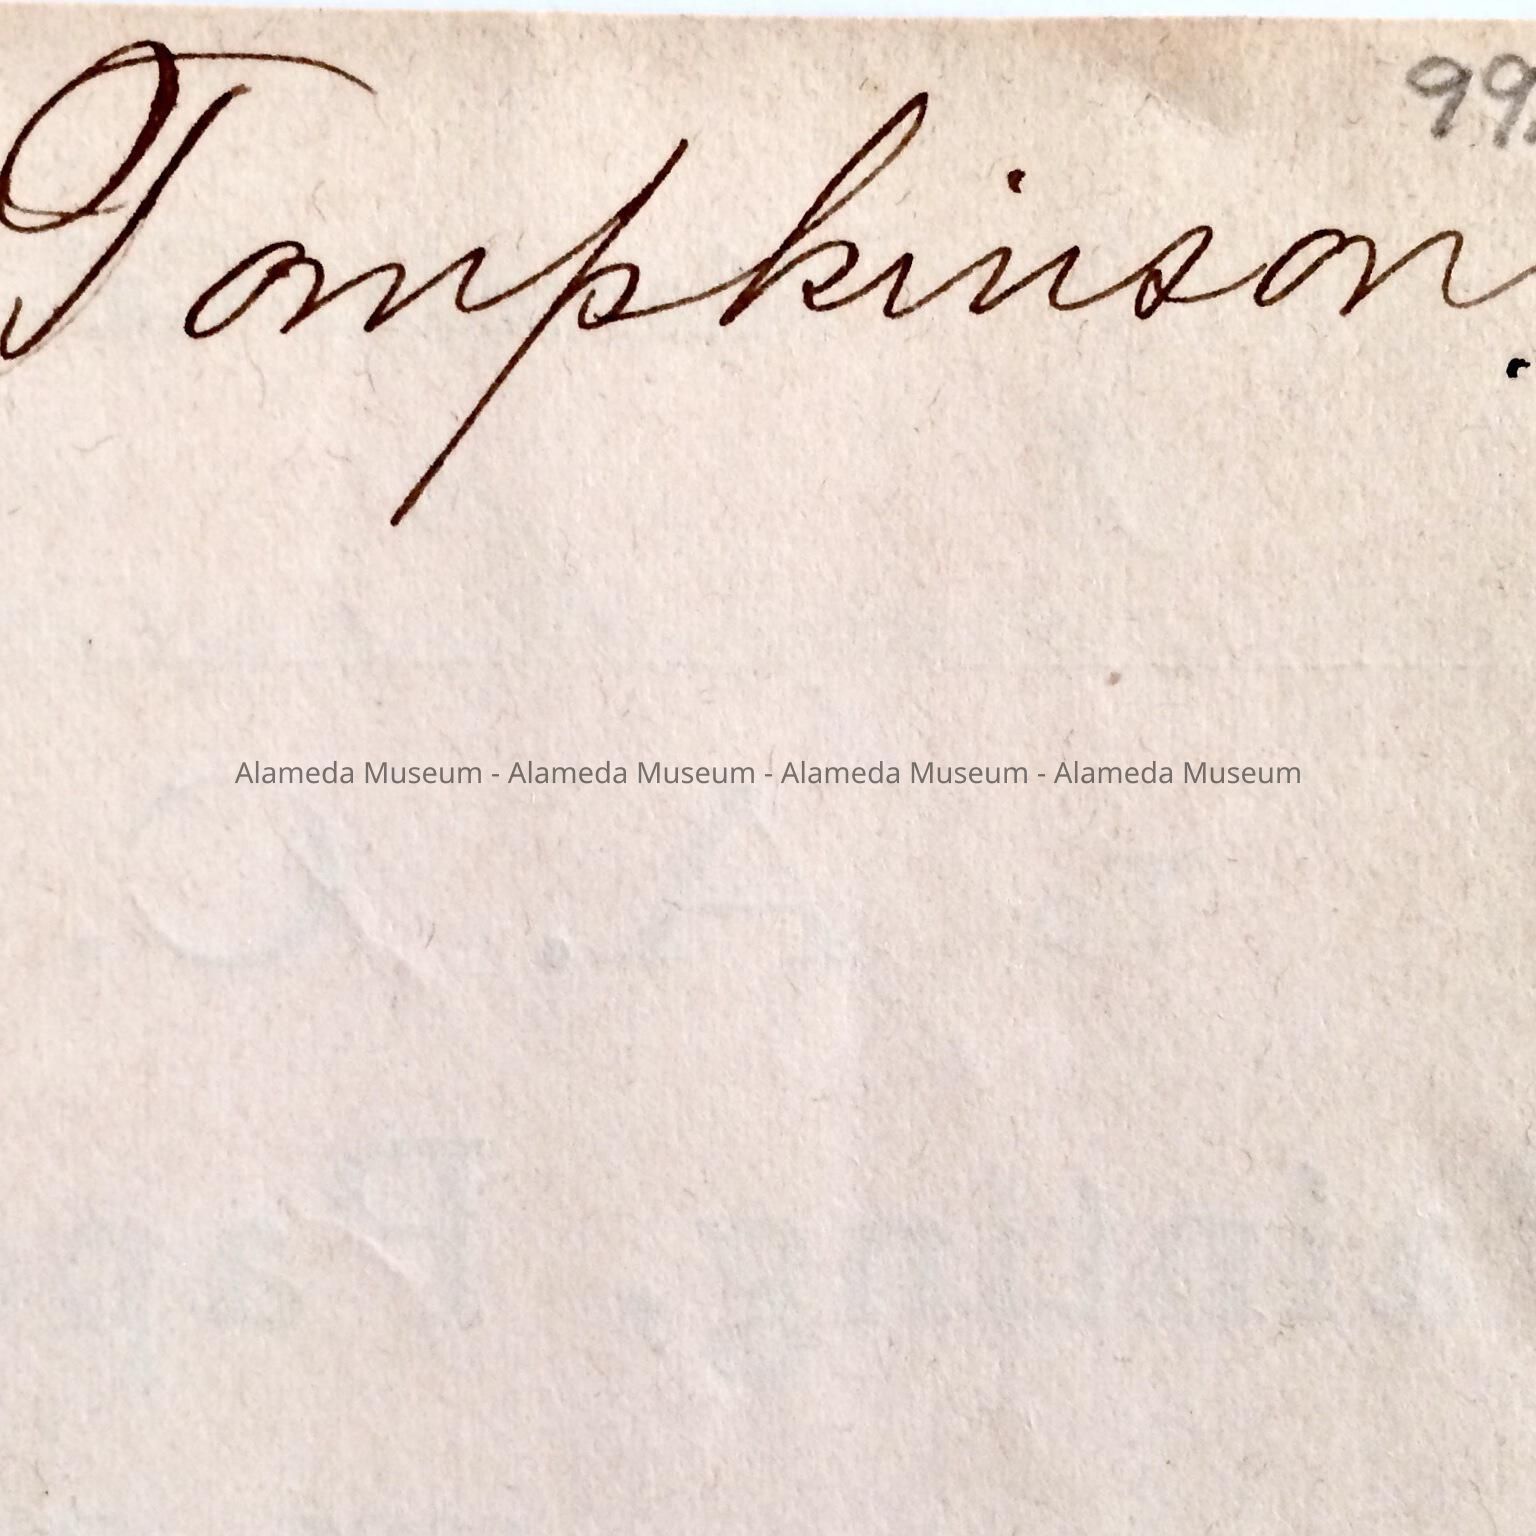 Tompkinson.
Alameda Museum - Alameda Museum - Alameda Museum - Alameda Museum